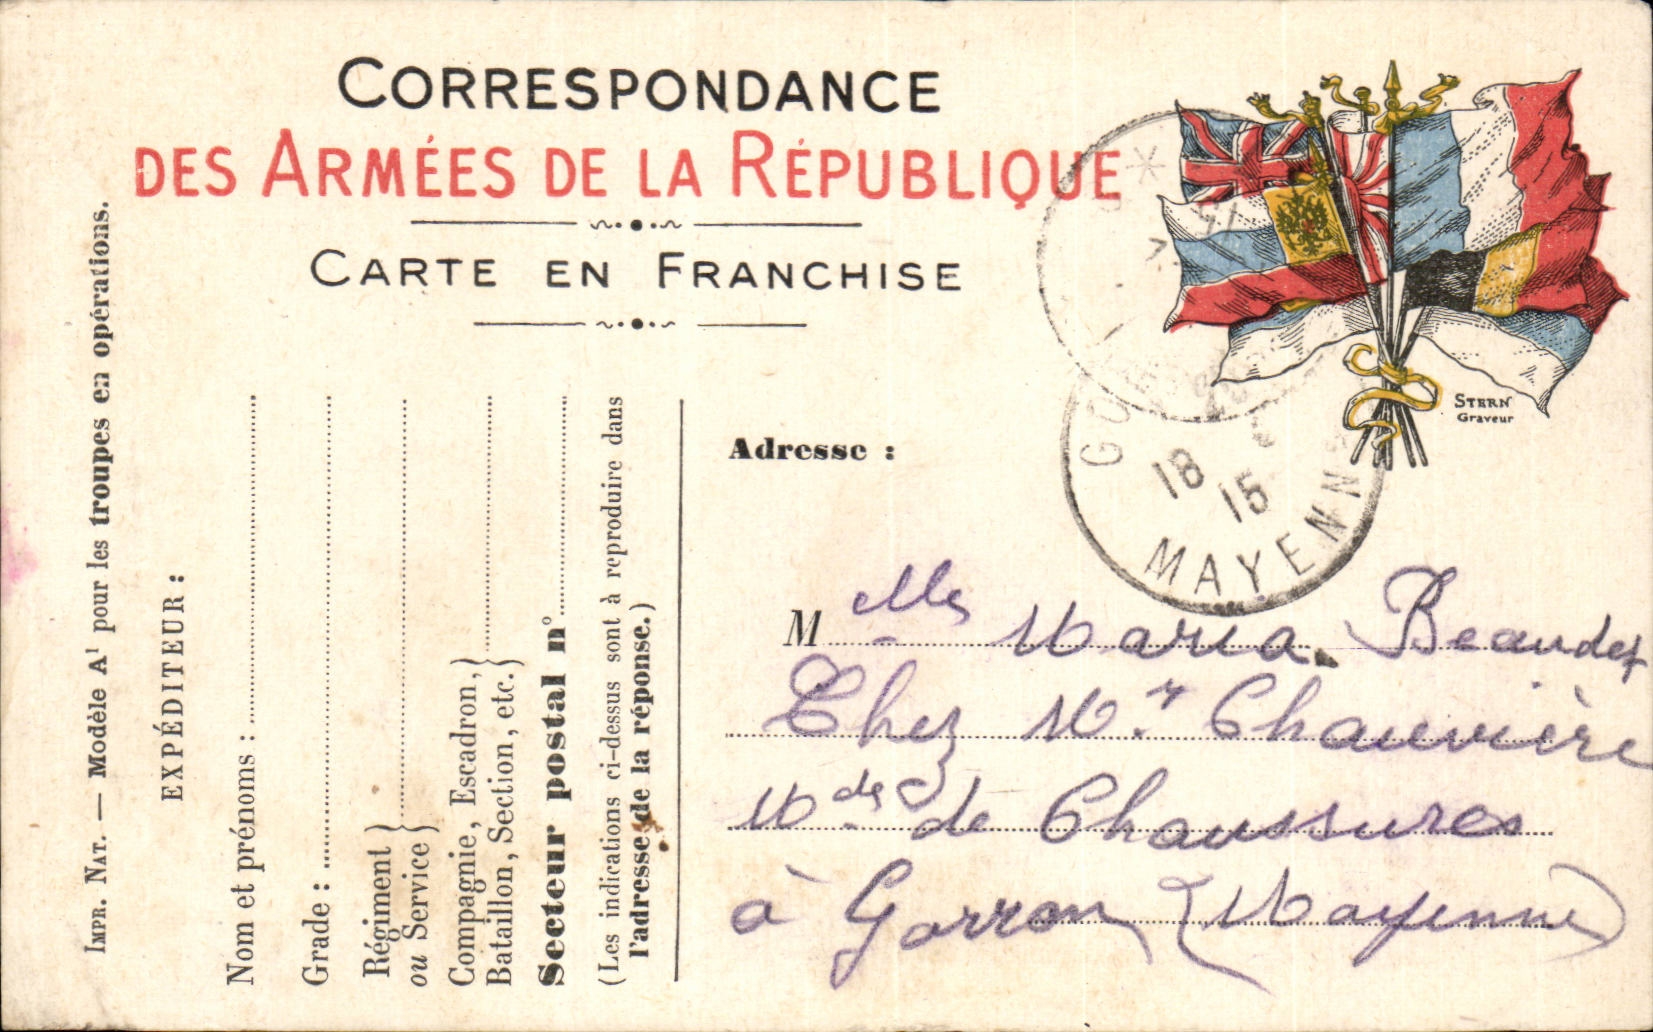 CORRESPONDANCE
DES ARMÉES DE LA RÉPUBLIQUE
CARTE EN FRANCHISE
STERN
Graveur
IMPR. NAT. — Modèle A¹ pour les troupes en opérations.
EXPÉDITEUR :
Nom et prénoms :
Grade :
Régiment
ou Service
Compagnie, Escadron,
Bataillon, Section, etc.
Secteur postal n°
(Les indications ci-dessus sont à reproduire dans
l'adresse de la réponse.)
Adresse :
15
18
15
MAYENNE
M elle Maria Beaudet
Chez Mr. Chauvière
Md de Chaussures
à Gorron (Mayenne)